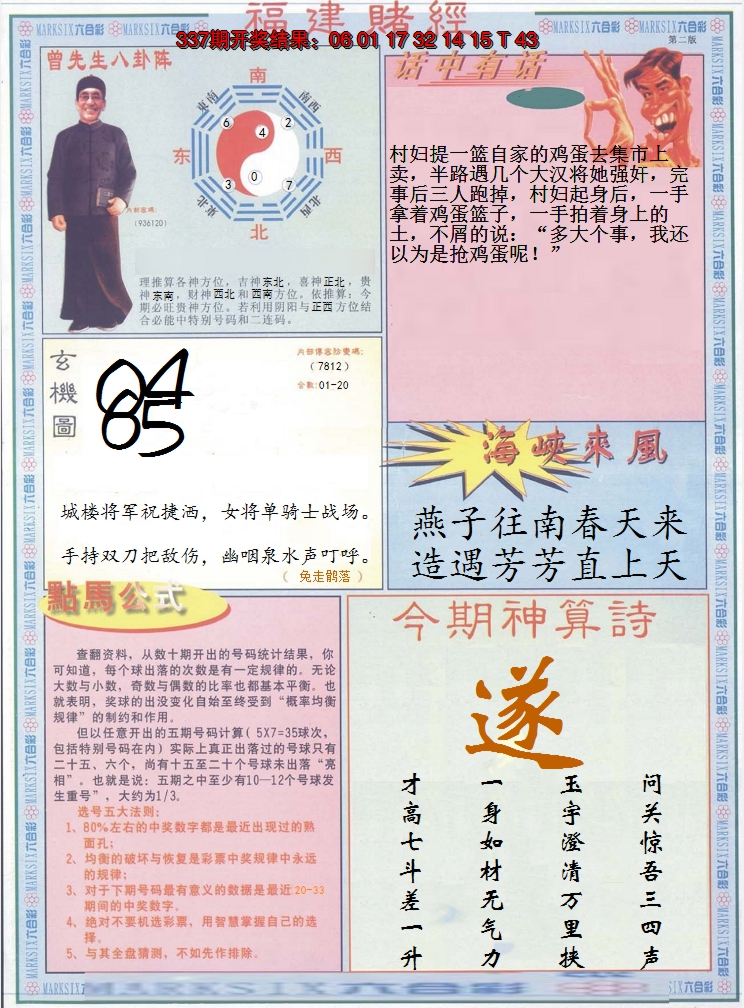 福建賭經
337期开奖结果：06 01 17 32 14 15 T 43
第二版
MARKSIX六合彩
曾先生八卦阵
南
东南
南西
6
4
2
东
西
3
0
7
东北
北西
北
内部密码：
（936120）
理推算各神方位，吉神东北，喜神正北，贵
神东南，财神西北和西南方位。依推算：今
期必旺贵神方位。若利用阴阳与正西方位结
合必能中特别号码和二连码。
话中有话
村妇提一篮自家的鸡蛋去集市上
卖，半路遇几个大汉将她强奸，完
事后三人跑掉，村妇起身后，一手
拿着鸡蛋篮子，一手拍着身上的
土，不屑的说：“多大个事，我还
以为是抢鸡蛋呢！”
玄機圖
04
65
内部傳密防變碼：
（7812）
合數：01-20
城楼将军祝捷洒，女将单骑士战场。
手持双刀把敌伤，幽咽泉水声叮呼。
（ 兔走鹘落 ）
海峽來風
燕子往南春天来
造遇芳芳直上天
點馬公式
查翻资料，从数十期开出的号码统计结果，你
可知道，每个球出落的次数是有一定规律的。无论
大数与小数，奇数与偶数的比率也都基本平衡。也
就表明，奖球的出没变化自始至终受到“概率均衡
规律”的制约和作用。
但以任意开出的五期号码计算（5X7=35球次，
包括特别号码在内）实际上真正出落过的号球只有
二十五、六个，尚有十五至二十个号球未出落“亮
相”。也就是说：五期之中至少有10—12个号球发
生重号”，大约为1/3。
选号五大法则：
1、80%左右的中奖数字都是最近出现过的熟
面孔；
2、均衡的破坏与恢复是彩票中奖规律中永远
的规律；
3、对于下期号码最有意义的数据是最近20-33
期间的中奖数字。
4、绝对不要机选彩票，用智慧掌握自己的选
择。
5、与其全盘猜测，不如先作排除。
今期神算詩
遂
问关惊吾三四声
玉宇澄清万里挟
一身如材无气力
才高七斗差一升